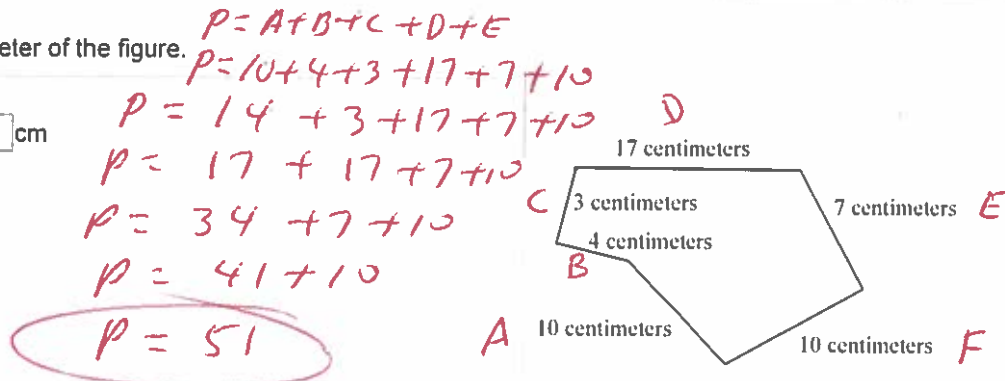 P = A+B+C+D+E
eter of the figure.
P = 10+4+3+17+7+10
P = 14 + 3+17+7+10
cm
P = 17 + 17+7+10
P = 34 +7+10
P = 41+10
P = 51
D
17 centimeters
C 3 centimeters
7 centimeters E
4 centimeters
B
A 10 centimeters
10 centimeters F